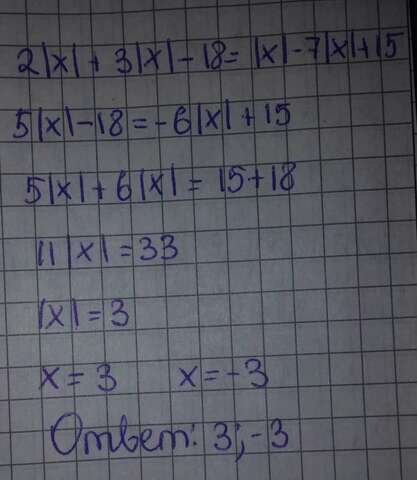 2|x| + 3|x| - 18 = |x| - 7|x| + 15
5|x| - 18 = - 6|x| + 15
5|x| + 6|x| = 15 + 18
11|x| = 33
|x| = 3
x = 3 x = -3
Ответ: 3; -3